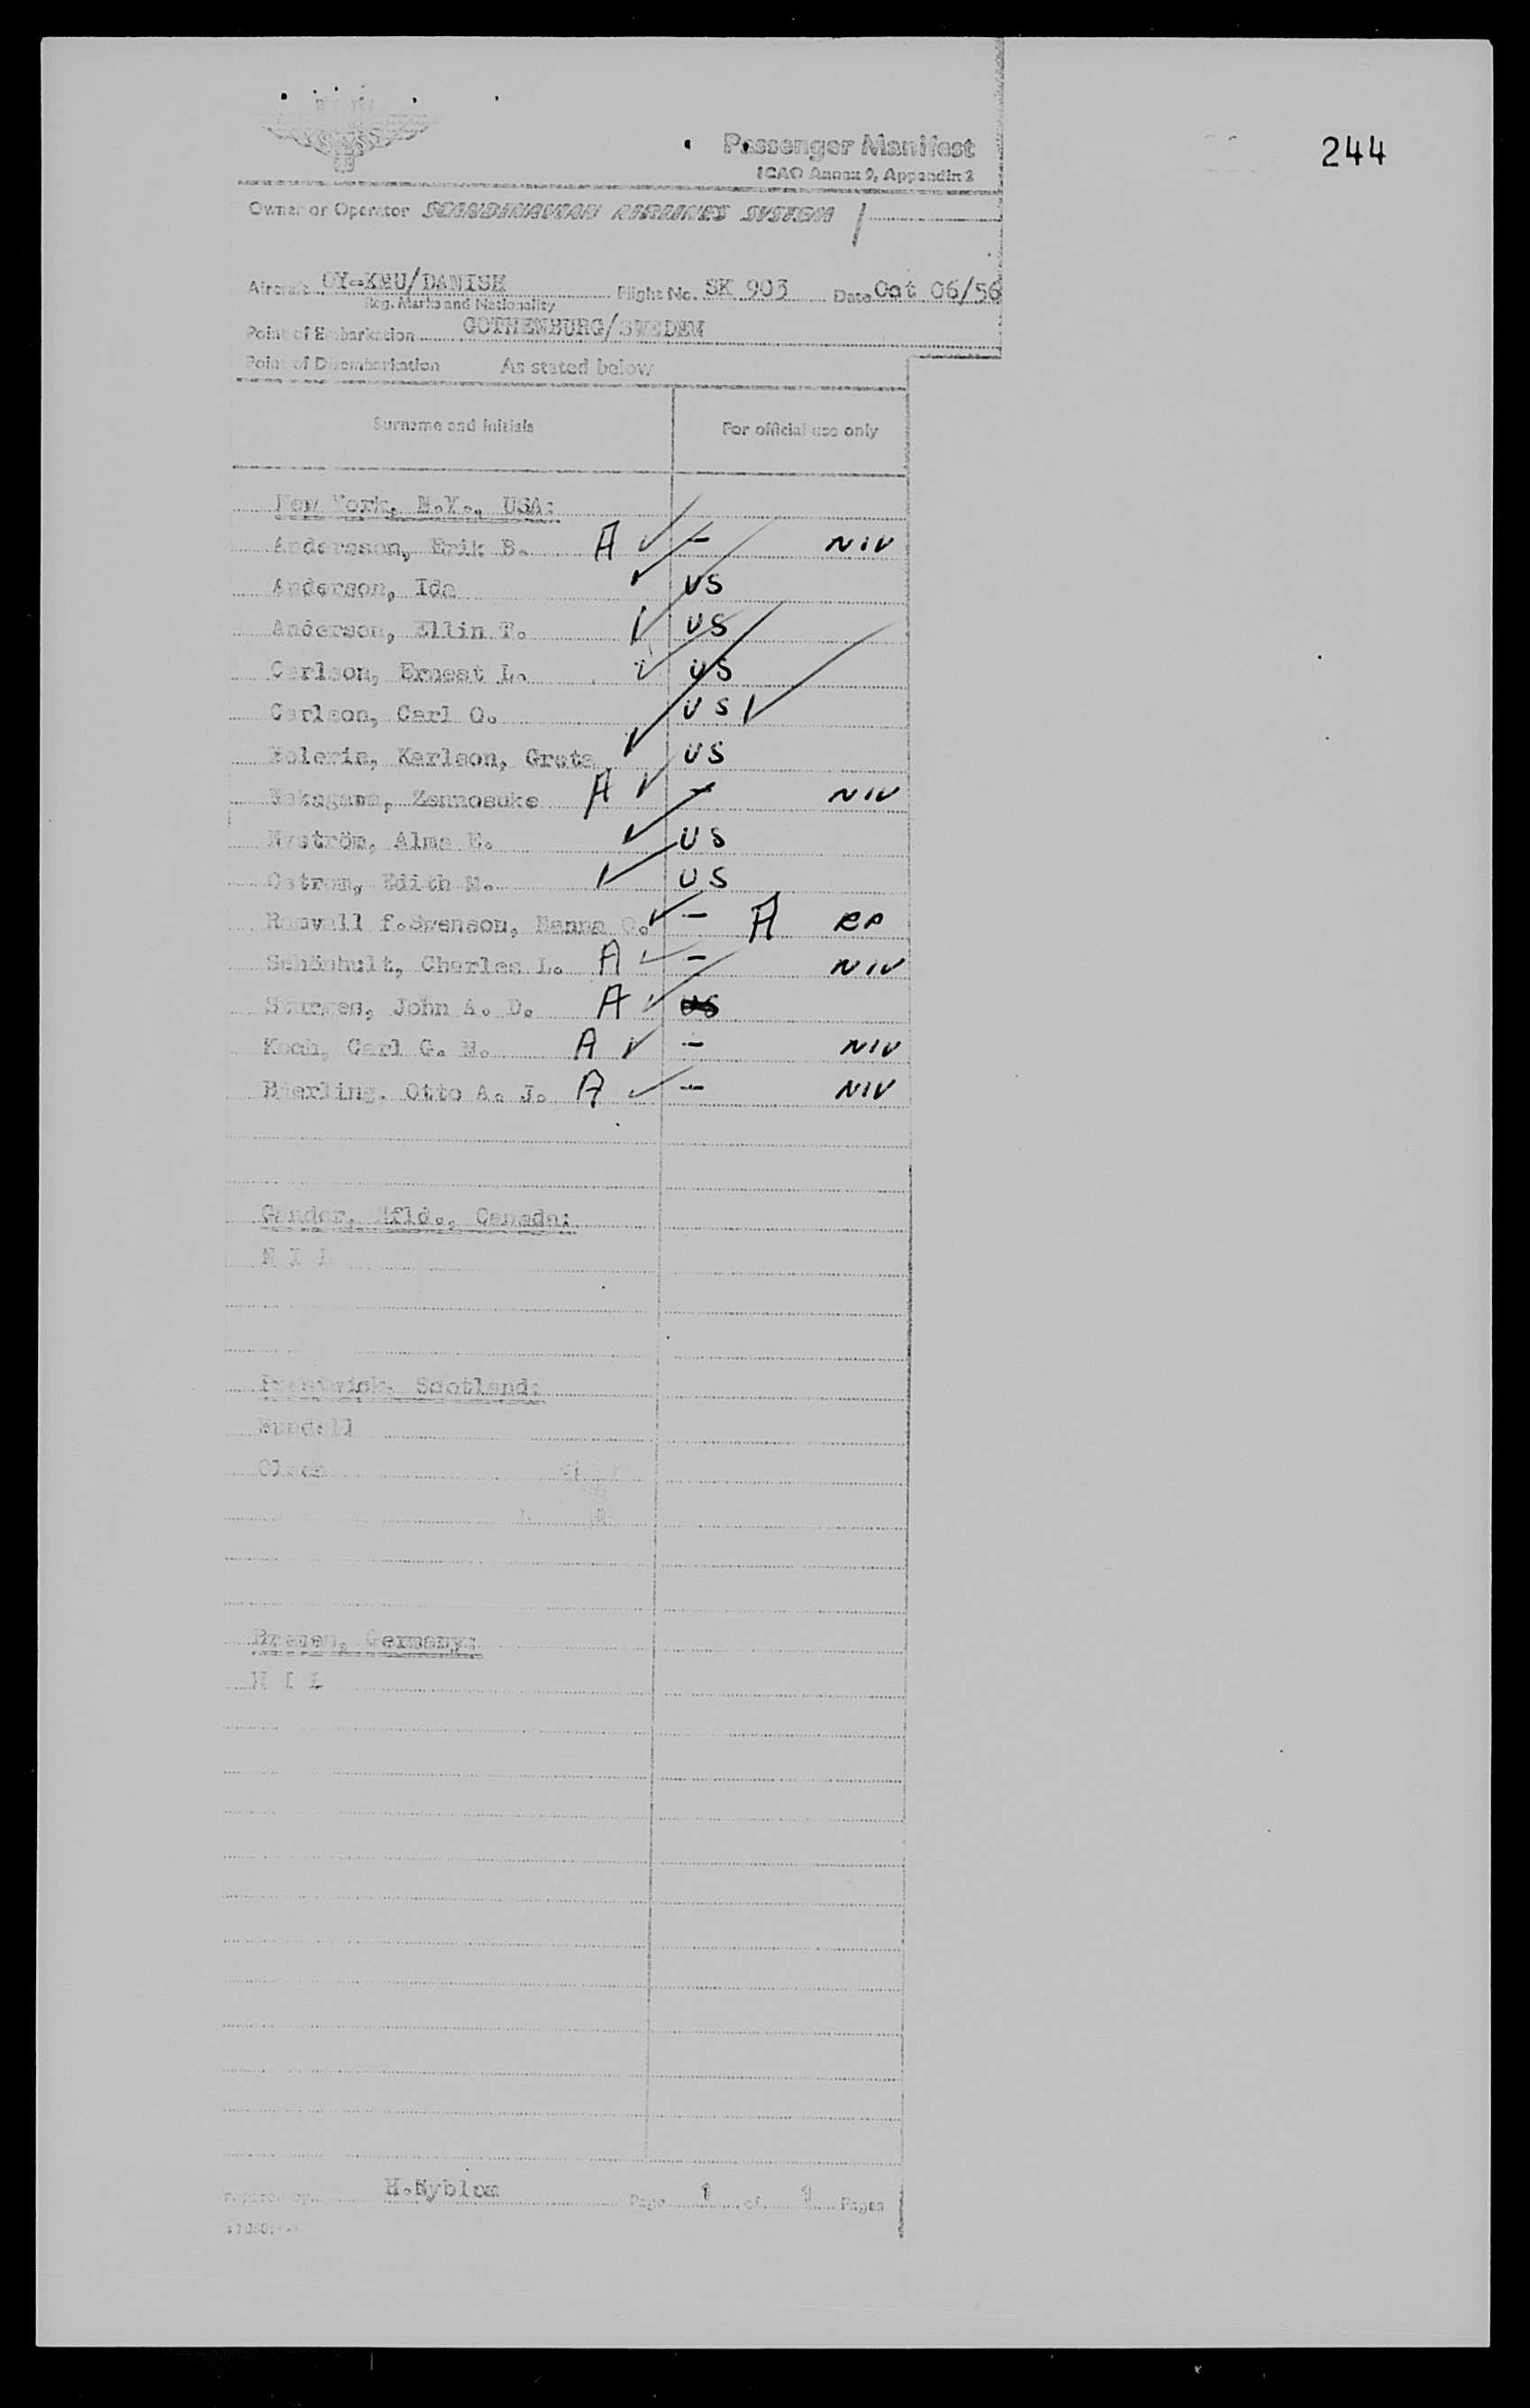 244
Passenger Manifest
ICAO Annex 9, Appendix 2
Owner or Operator SCANDINAVIAN AIRLINES SYSTEM
Aircraft OY-KMU/DANISH Flight No. SK 903 Date Oct 06/56
Reg. Marks and Nationality
Point of Embarkation GOTHENBURG/SWEDEN
Point of Disembarkation As stated below
Surname and initials For official use only
New York, N.Y., USA:
Andersson, Erik B. A ✓ - NIV
Anderson, Ida ✓ US
Anderson, Ellin T. ✓ US
Carlson, Ernest L. ✓ US
Carlson, Carl O. US ✓
Karlson, Greta ✓ US
Zennosuke A ✓ - NIV
Nyström, Alma E. ✓ US
Ostrom, Edith M. ✓ US
f.Swenson, Hanna O. ✓ - A RP
Charles L. A ✓ - NIV
Sturges, John A. D. A ✓ US
Koch, Carl G. H. A ✓ - NIV
Otto A. J. A ✓ - NIV
Gander, Nfld., Canada:
N I L
Prestwick, Scotland:
Olsen
Bremen, Germany:
N I L
Prepared by H.Nyblom Page 1 of 1 Pages